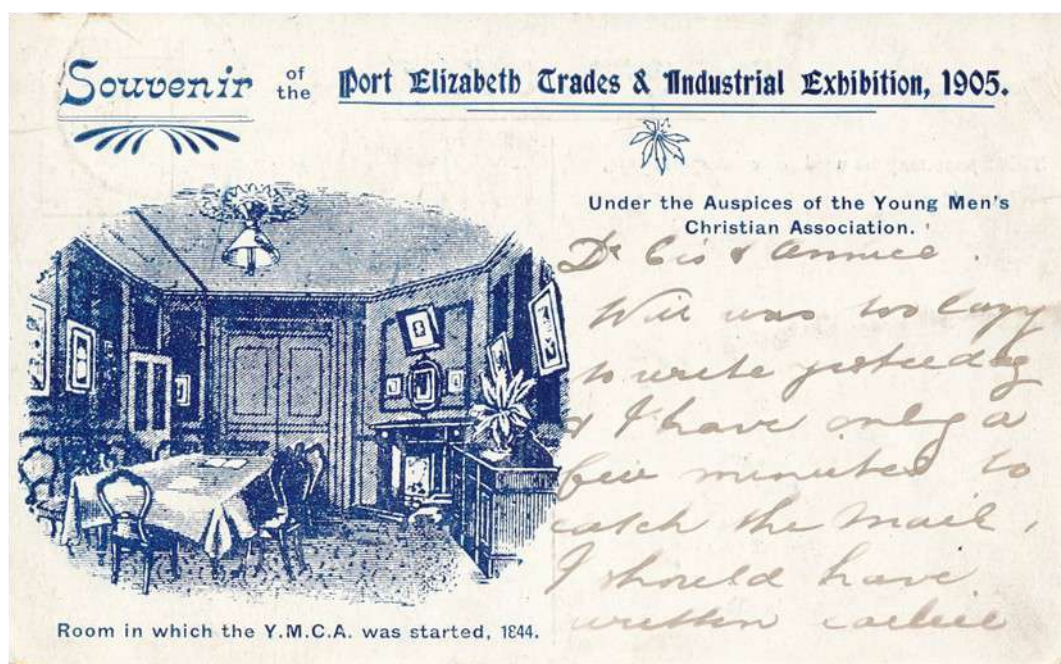 Souvenir of the Port Elizabeth Trades & Industrial Exhibition, 1905.
Under the Auspices of the Young Men's
Christian Association.
Dr Cis & Annice.
Will was too lazy
to write yesterday
& I have only a
few minutes to
catch the mail,
I should have
written earlier
Room in which the Y.M.C.A. was started, 1844.